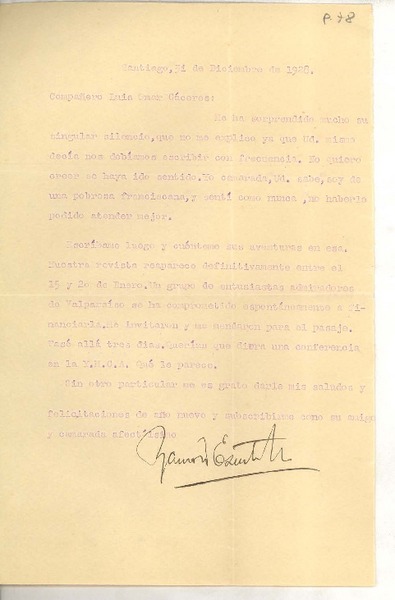 P.78
Santiago, 31 de Diciembre de 1928.
Compañero Luis Omar Cáceres:
Me ha sorprendido mucho su
singular silencio, que no me explico ya que Ud. mismo
decía nos debíamos escribir con frecuencia. No quiero
creer se haya ido sentido. Yo camarada, Ud. sabe, soy de
una pobreza franciscana, y sentí como nunca , no haberlo
podido atender mejor.
Escríbame luego y cuénteme sus aventuras en esa.
Nuestra revista reaparece definitivamente entre el
15 y 20 de Enero. Un grupo de entusiastas admiradores
de Valparaíso se ha comprometido espontáneamente a fi-
nanciarla. Me invitaron y me mandaron para el pasaje.
Pasé allá tres días. Querían que diera una conferencia
en la Y.M.C.A. Qué le parece.
Sin otro particular me es grato darle mis saludos y
felicitaciones de año nuevo y subscribirme como su amigo
y camarada afectísimo